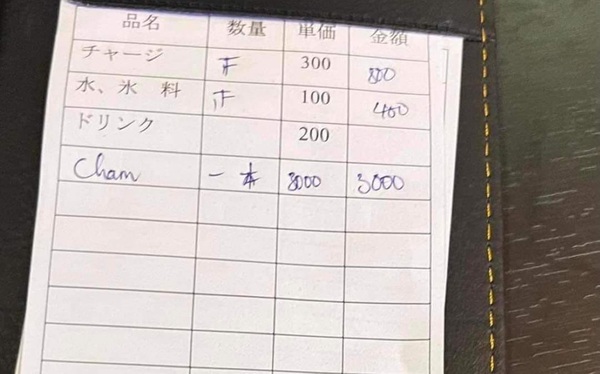 品名 数量 単価 金額
チャージ 300
水、氷 料 100 400
ドリンク 200
Cham 一本 3000 3000